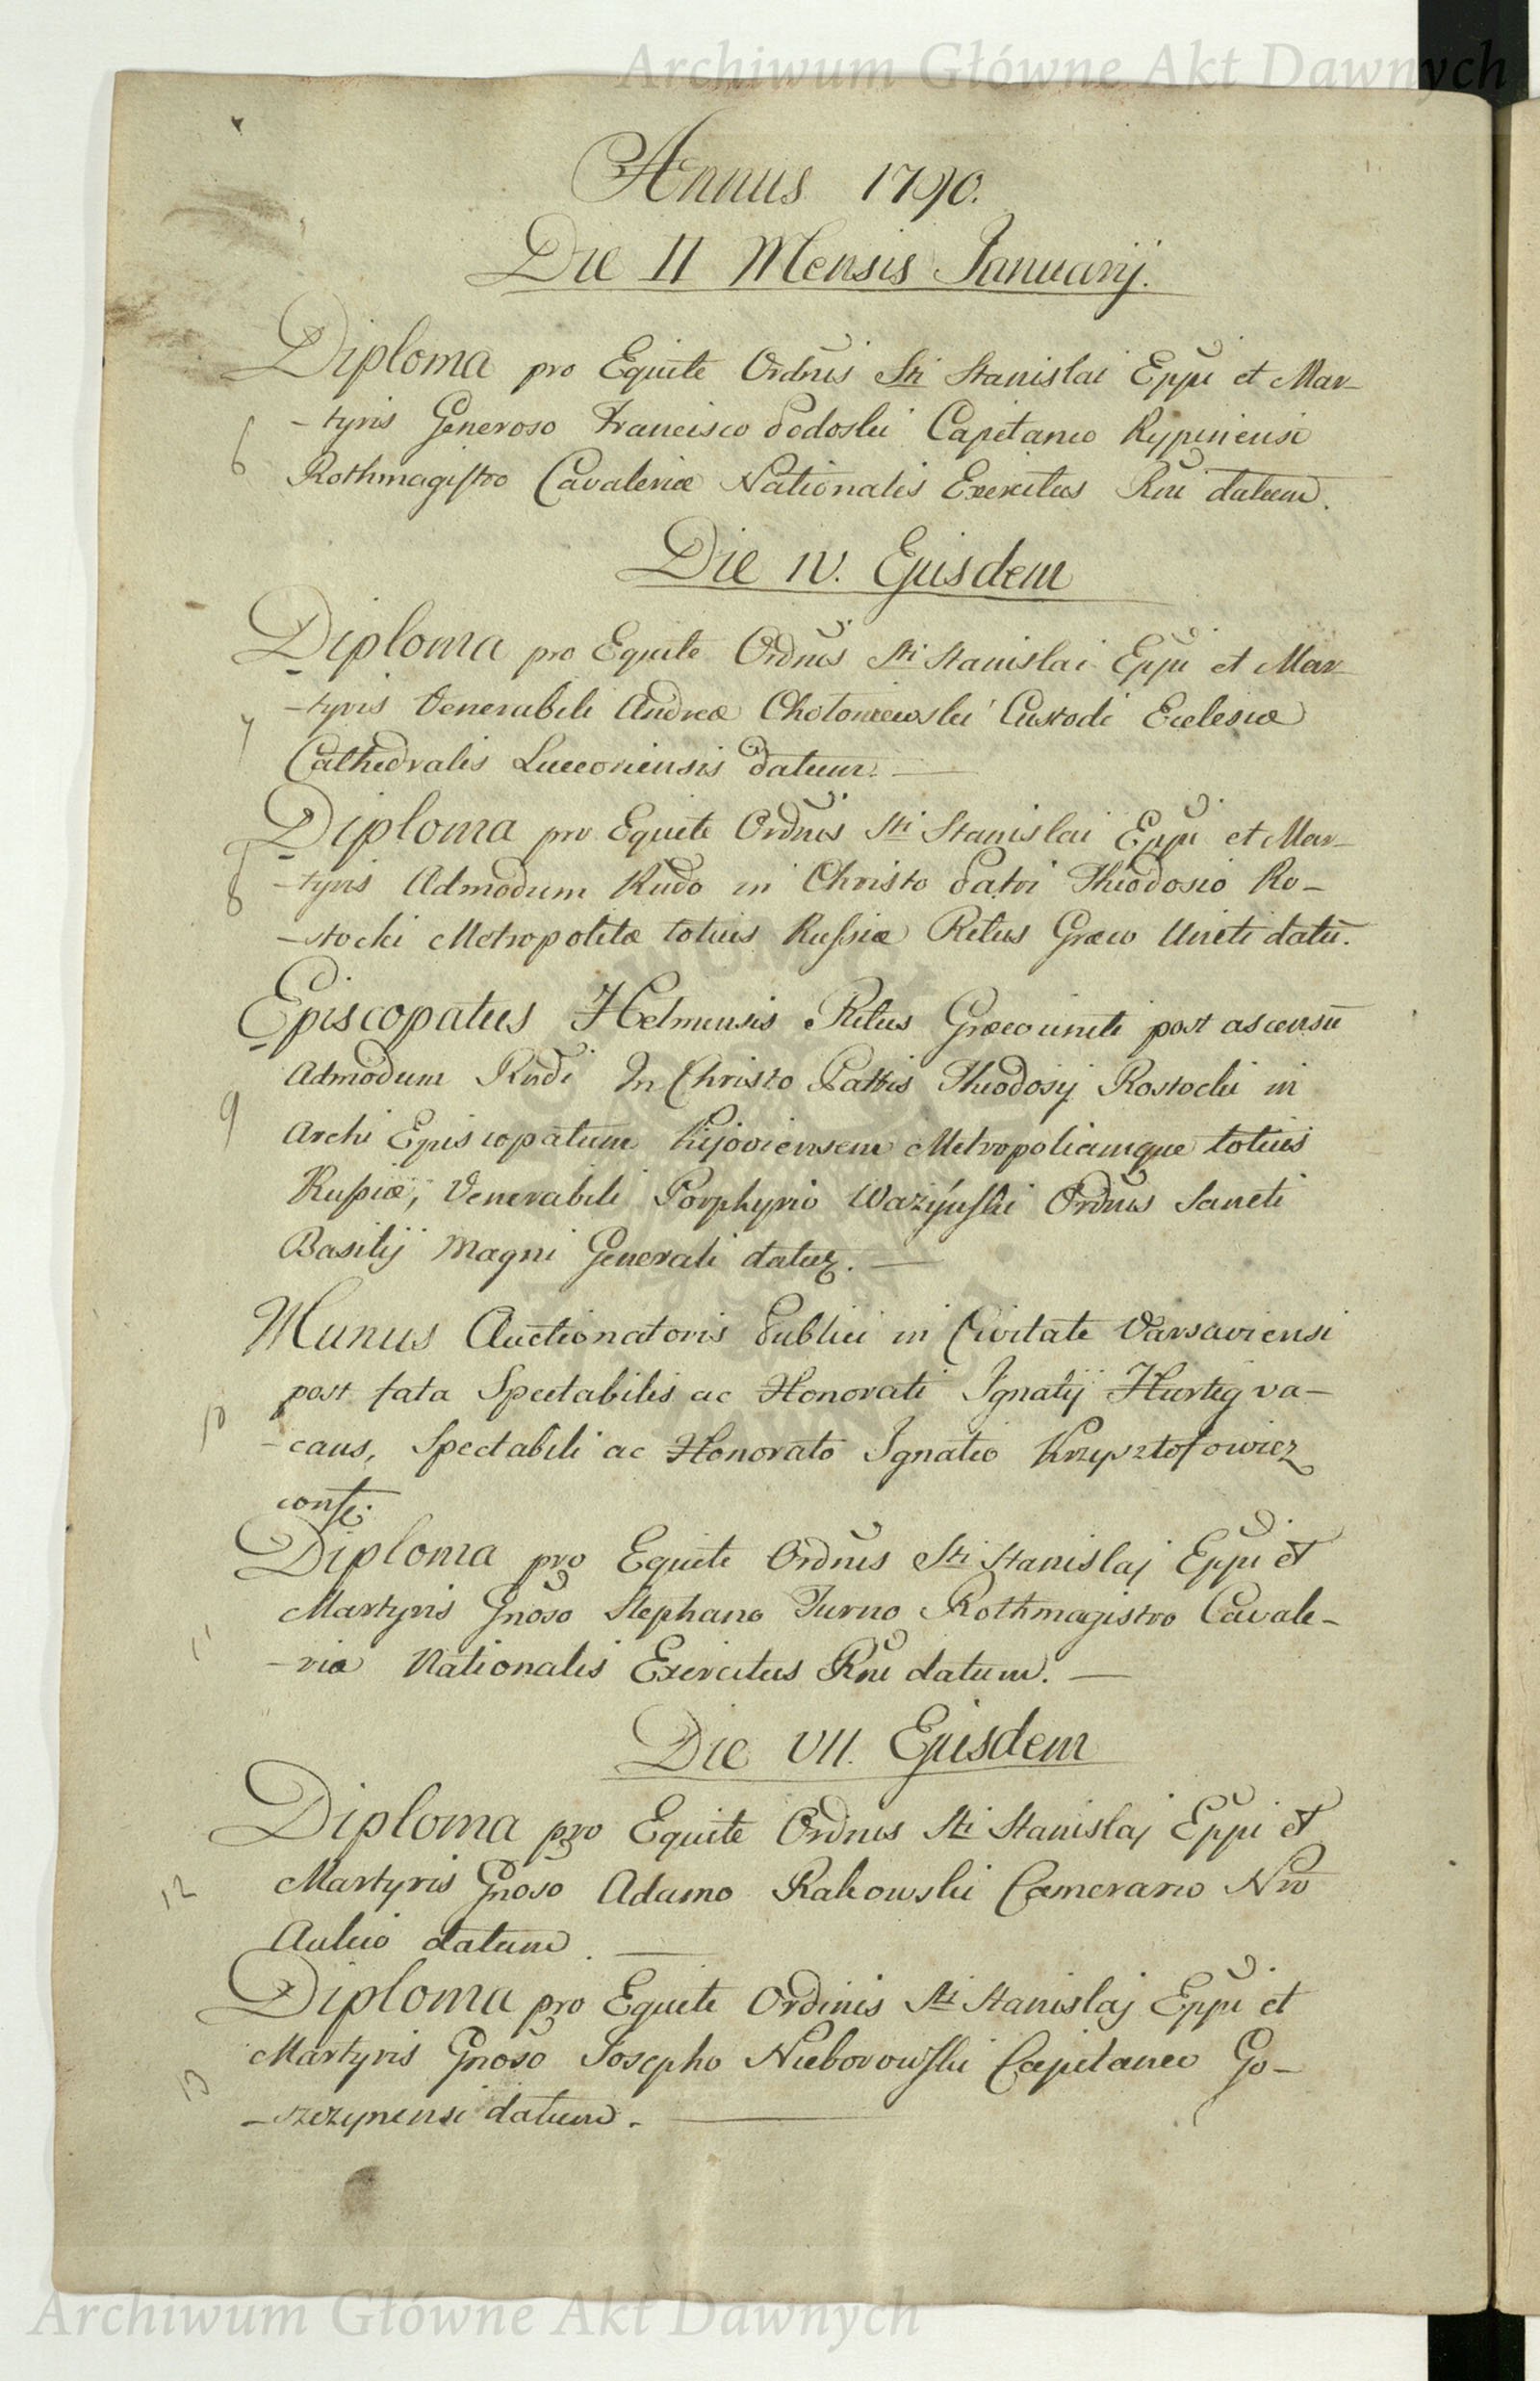 Archiwum Główne Akt Dawnych
Annus 1790.
Die II Mensis Januarij.
Diploma pro Equite Ordnis Sti Stanislai Eppi et Mar-
-tyris Generoso Francisco Podoski Capitaneo Rypinensi
6
Rothmagistro Cavaleriæ Nationalis Exercitus Rni datum.
Die IV. Ejusdem
Diploma pro Equite Ordnis Sti Stanislai Eppi et Mar-
-tyris Venerabili Andreæ Chołoniewski Custodi Eclesiæ
7
Cathedralis Luceoriensis datum.
Diploma pro Equite Ordnis Sti Stanislai Eppi et Mar-
8
-tyris Admodum Rndo in Christo Patri Theodosio Ro-
-stocki Metropolitæ totius Russiæ Ritus Græco Uniti datū.
Episcopatus Helmensis Ritus Græcouniti post ascensū
Admodum Rndi In Christo Patris Theodosij Rostocki in
9
Archi Episcopatum Kijoviensem Metropoliamque totius
Russiæ, Venerabili Porphyrio Ważyński Ordnis Sancti
Basilij Magni Generali datus.
Munus Auctionatoris Publici in Civitate Varsaviensi
post fata Spectabilis ac Honorati Ignatij Hurtig va-
10
-cans, Spectabili ac Honorato Ignatio Krzysztofowicz
conf.
Diploma pro Equite Ordnis Sti Stanislaj Eppi et
Martyris Gnoso Stephano Turno Rothmagistro Cavale-
11
-riæ Nationalis Exercitus Rni datum.
Die VII. Ejusdem
Diploma pro Equite Ordnis Sti Stanislaj Eppi et
Martyris Gnoso Adamo Rakowski Camerario Nro
12
Aulico datum.
Diploma pro Equite Ordinis Sti Stanislaj Eppi et
Martyris Gnoso Josepho Nieborowski Capitaneo Go-
13
-szczynensi datum.
Archiwum Główne Akt Dawnych